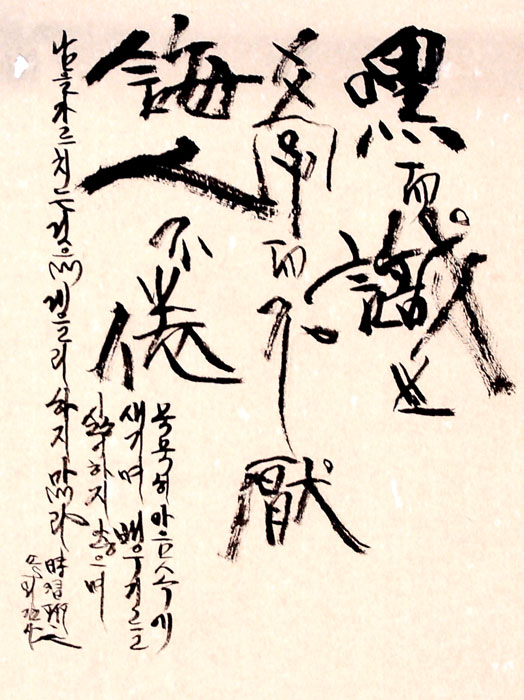 嘿而識之
學而不厭
誨人不倦
묵묵히 마음속에
새기며 배우기를
싫어하지 않으며
남을 가르치는 것을 게을리 하지 마라
時習